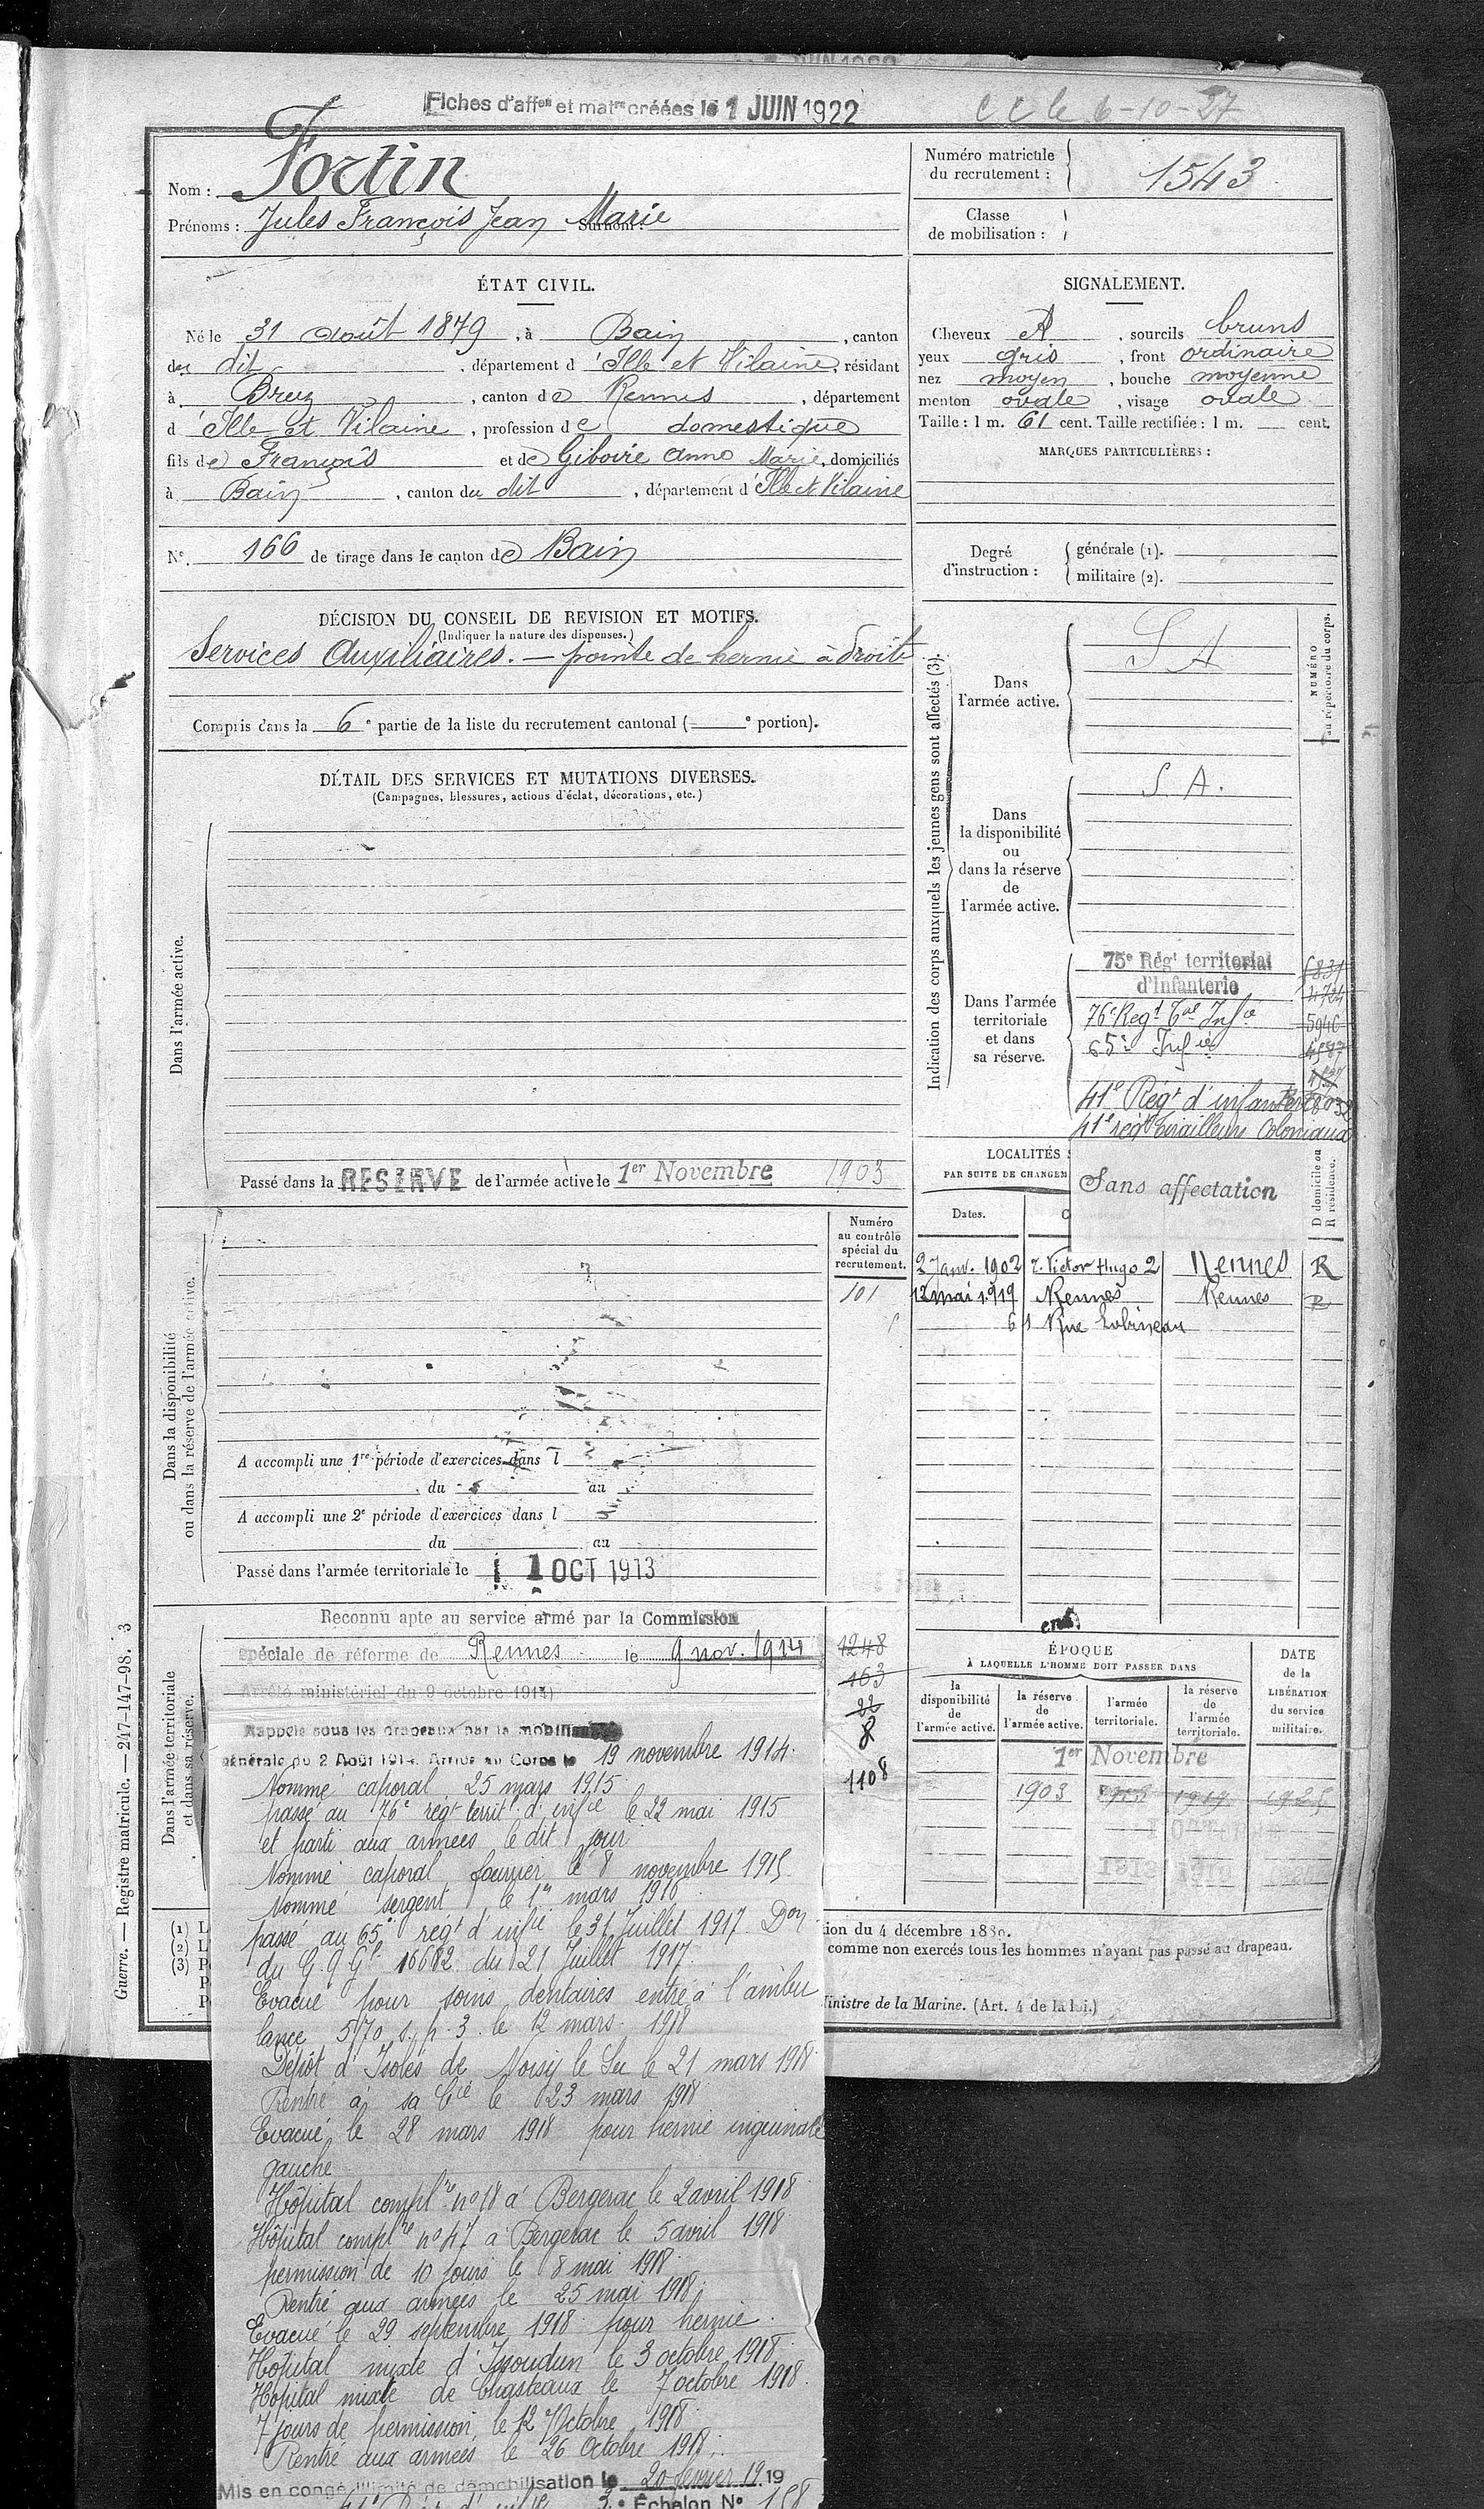 Fiches d'affon et matre créées le 1 JUIN 1922
C C le 6-10-27
Nom : Fortin
Prénoms : Jules François Jean Marie Surnom :
Numéro matricule du recrutement : 1543
Classe de mobilisation :
ÉTAT CIVIL.
Né le 31 août 1879, à Bain, canton
du dit, département d'Ille et Vilaine, résidant
à Bruz, canton de Rennes, département
d'Ille et Vilaine, profession de domestique
fils de François et de Giboire Anne Marie, domiciliés
à Bain, canton du dit, département d'Ille et Vilaine
N° 166 de tirage dans le canton de Bain
SIGNALEMENT.
Cheveux A, sourcils bruns
yeux gris, front ordinaire
nez moyen, bouche moyenne
menton ovale, visage ovale
Taille : 1 m. 61 cent. Taille rectifiée : 1 m. — cent.
MARQUES PARTICULIÈRES :
Degré d'instruction :
générale (1).
militaire (2).
DÉCISION DU CONSEIL DE REVISION ET MOTIFS.
(Indiquer la nature des dispenses.)
Services Auxiliaires. — pointe de hernie à droite
Compris dans la 6e partie de la liste du recrutement cantonal (— e portion).
DÉTAIL DES SERVICES ET MUTATIONS DIVERSES.
(Campagnes, blessures, actions d'éclat, décorations, etc.)
Dans l'armée active.
Passé dans la RESERVE de l'armée active le 1er Novembre 1903
Indication des corps auxquels les jeunes gens sont affectés (3).
NUMÉRO au répertoire du corps.
Dans l'armée active.
S A
Dans la disponibilité ou dans la réserve de l'armée active.
S. A.
Dans l'armée territoriale et dans sa réserve.
75e Régt territorial
d'Infanterie
76e Régt Tal Infie
5946
65e Infie
41e Régt d'infanterie
41e régt tirailleurs Coloniaux
Sans affectation
LOCALITÉS
PAR SUITE DE CHANGEM
D domicile ou R résidence.
Dates.
2 Janv. 1902 r. Victor Hugo 2 Rennes R
12 mai 1919 Rennes Rennes R
61 Rue Lobineau
Dans la disponibilité ou dans la réserve de l'armée active.
Numéro au contrôle spécial du recrutement.
101
A accompli une 1re période d'exercices dans l
du au
A accompli une 2e période d'exercices dans l
du au
Passé dans l'armée territoriale le 1 OCT 1913
Dans l'armée territoriale et dans sa réserve.
Reconnu apte au service armé par la Commission
spéciale de réforme de Rennes le 9 nov. 1914
Arrêté ministériel du 9 octobre 1914)
1248
163
22
8
1108
Rappelé sous les drapeaux par la mobilisation
générale du 2 Août 1914. Arrivé au Corps le 19 novembre 1914.
Nommé caporal 25 mars 1915
passé au 76e régt territ. d'infie le 22 mai 1915
et parti aux armées le dit jour
Nommé caporal fourrier le 8 novembre 1915
Nommé sergent le 1er mars 1916
passé au 65e régt d'infie le 31 Juillet 1917. Don
du G Q Gl 16682 du 21 Juillet 1917
Evacué pour soins dentaires entré à l'ambu
lance 5/70 s. p. 3 le 12 mars 1918
Dépôt d'Isolés de Noisy le Sec le 21 mars 1918
Rentré à sa Cie le 23 mars 1918
Evacué le 28 mars 1918 pour hernie inguinale
gauche
Hôpital complre n° 18 à Bergerac le 2 avril 1918
Hôpital complre n° 47 à Bergerac le 5 avril 1918
permission de 10 jours le 8 mai 1918
Rentré aux armées le 25 mai 1918
Evacué le 29 septembre 1918 pour hernie
Hôpital mixte d'Issoudun le 3 octobre 1918
Hôpital mixte de Chasteaux le 7 octobre 1918
7 jours de permission le 12 Octobre 1918
Rentré aux armées le 26 Octobre 1918
Mis en congé illimité de démobilisation le 20 février 1919
41e Régt d'infie 3e Échelon N° 158
ÉPOQUE
À LAQUELLE L'HOMME DOIT PASSER DANS
la disponibilité de l'armée active.
la réserve de l'armée active.
l'armée territoriale.
la réserve de l'armée territoriale.
DATE de la LIBÉRATION du service militaire.
1er Novembre
1903 1913 1919
tion du 4 décembre 1889.
comme non exercés tous les hommes n'ayant pas passé au drapeau.
Ministre de la Marine. (Art. 4 de la loi.)
Guerre. — Registre matricule. — 247-147-98. 3